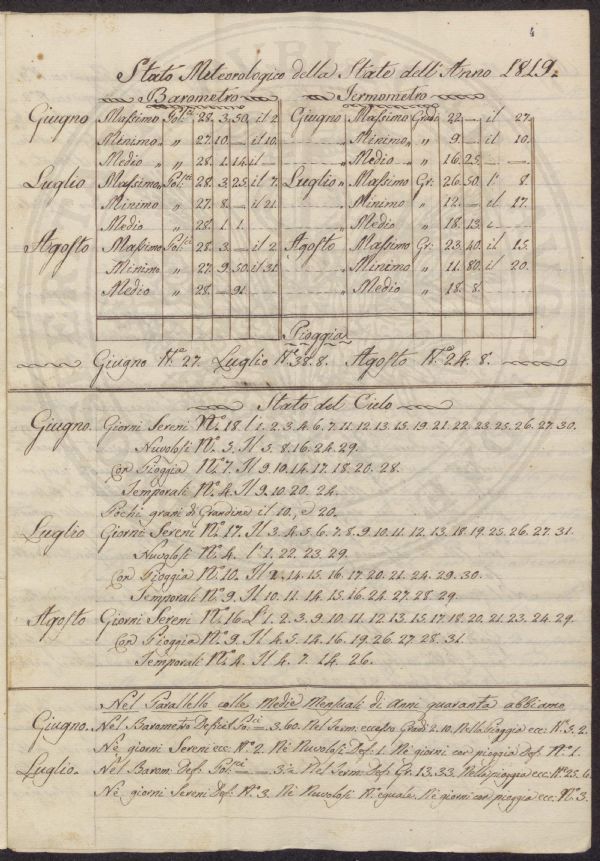 4
Stato Meteorologico della State dell'Anno 1819.
Barometro Termometro
Giugno Massimo Pol:ci 28. 3. 50. il 2 Giugno Massimo Gradi 22. — il 27.
Minimo „ „ 27. 10. — il 10. „ Minimo „ „ 9. — il 10.
Medio „ „ 28. 1. 14. il — „ Medio „ „ 16. 25. — —
Luglio Massimo „ Pol:ci 28. 3. 25. il 7. Luglio „ Massimo Gr: 26. 50. l' 8.
Minimo „ 27. 8. — il 21 „ Minimo „ 12. — il 17.
Medio „ 28. 1. 1. „ Medio „ 18. 13.
Agosto Massimo Pol:ci 28. 3. — il 2 Agosto Massimo Gr: 23. 40. il 15.
Minimo „ 27. 9. 50. il 31 „ Minimo „ 11. 80. il 20.
Medio „ 28. — 91. „ Medio „ 18. 8.
Pioggia
Giugno N.º 27. Luglio N.º 38. 8. Agosto N.º 24. 8.
Stato del Cielo
Giugno. Giorni Sereni N.º 18. l'1. 2. 3. 4. 6. 7. 11. 12. 13. 15. 19. 21. 22. 23. 25. 26. 27. 30.
Nuvolosi N.º 5. Il 5. 8. 16. 24. 29.
Con Pioggia N.º 7. Il 9. 10. 14. 17. 18. 20. 28.
Temporali N.º 4. Il 9. 10. 20. 24.
Pochi grani di Grandine il 10, e 20.
Luglio Giorni Sereni N.º 17. Il 3. 4. 5. 6. 7. 8. 9. 10. 11. 12. 13. 18. 19. 25. 26. 27. 31.
Nuvolosi N.º 4. l'1. 22. 23. 29.
Con Pioggia N.º 10. Il 2. 14. 15. 16. 17. 20. 21. 24. 29. 30.
Temporali N.º 9. Il 10. 11. 14. 15. 16. 24. 27. 28. 29.
Agosto Giorni Sereni N.º 16. L'1. 2. 3. 9. 10. 11. 12. 13. 15. 17. 18. 20. 21. 23. 24. 29.
Con Pioggia N.º 9. Il 4. 5. 14. 16. 19. 26. 27. 28. 31.
Temporali N.º 4. Il 4. 7. 14. 26.
Nel Parallello colle Medie Mensuali di Anni quaranta abbiamo
Giugno. Nel Barometro Deficit Po:ci — 3. 60. Nel Term: eccesso Gradi 2. 10. Nella Pioggia ecc: N.º 3. 2.
Nè giorni Sereni ecc: N.º 2. Nè Nuvolosi Def: 1. Nè giorni con pioggia Def: N.º 1.
Luglio. Nel Barom: Def: Pol:ci — — 3: Nel Term: Def: Gr: 13. 33. Nella pioggia ecc: N.º 25. 6.
Nè giorni Sereni Def: N.º 3. Nè Nuvolosi N.º eguale. Nè giorni con pioggia ecc: N.º 3.